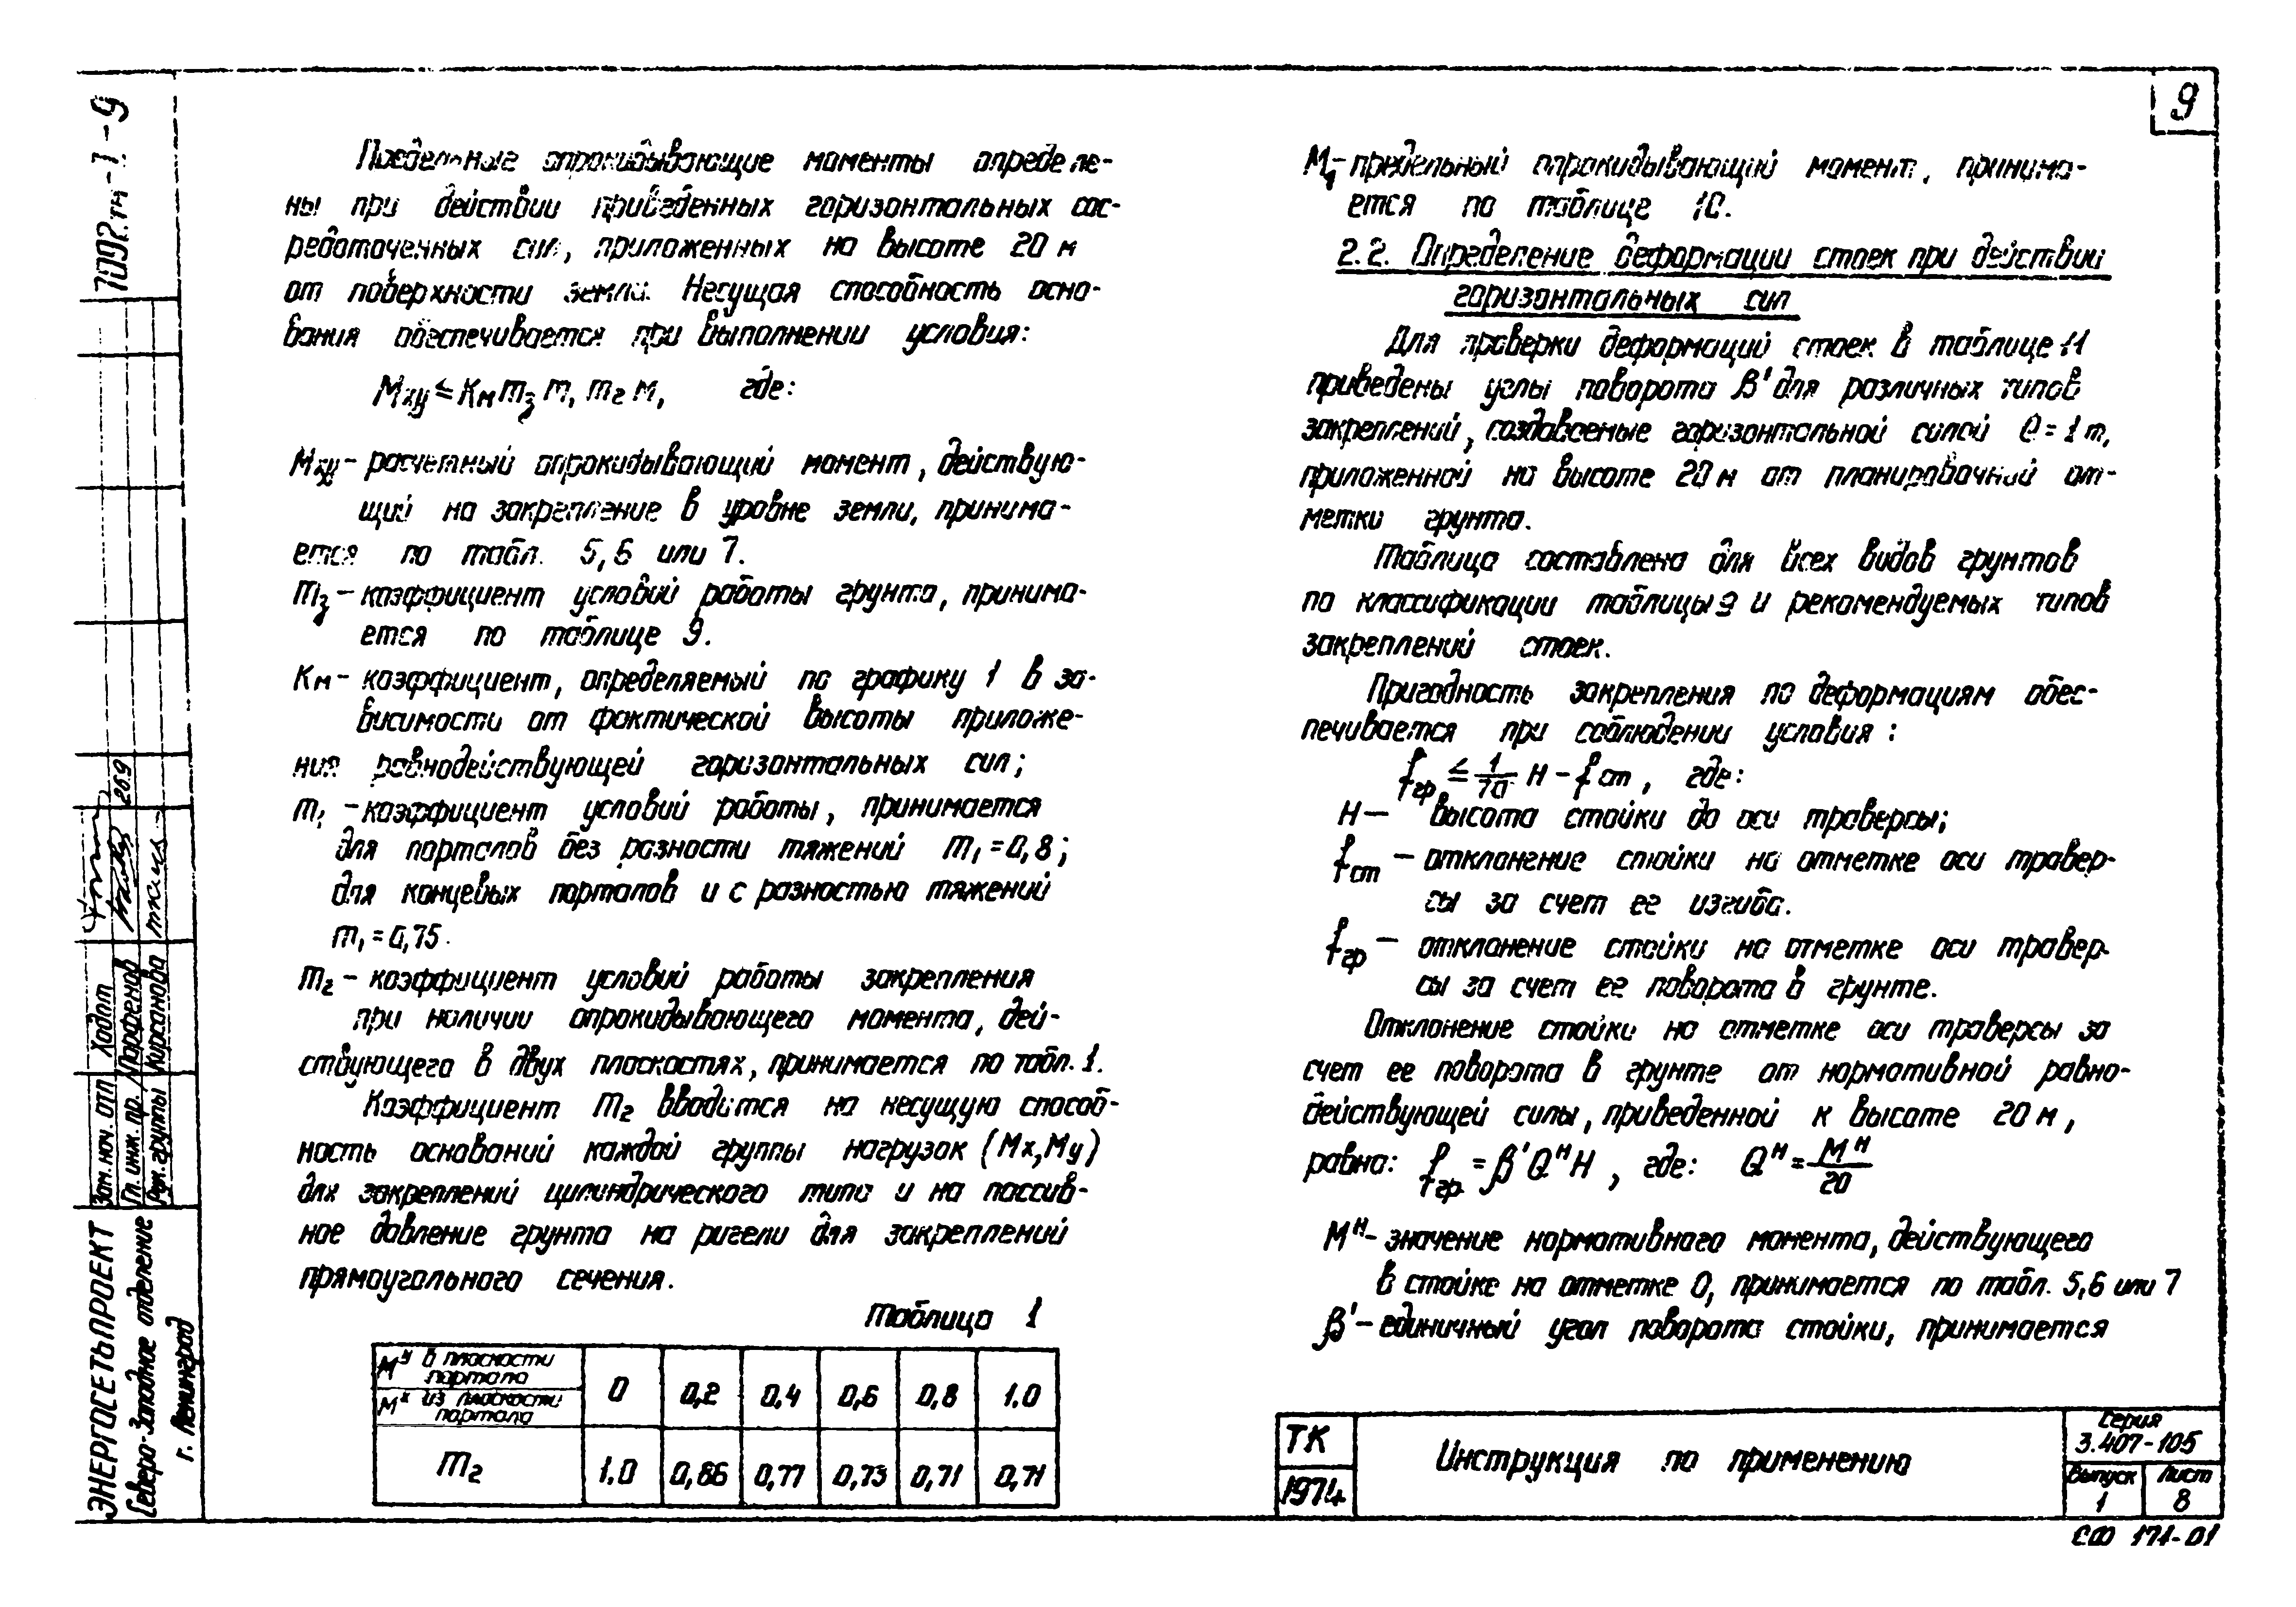 9
Предельные опрокидывающие моменты определе-
ны при действии приведенных горизонтальных сос-
редоточенных сил, приложенных на высоте 20 м
от поверхности земли. Несущая способность осно-
вания обеспечивается при выполнении условия:
Mxy ≤ Kм m3 m1 m2 M1    где:
Mxy - расчетный опрокидывающий момент, действую-
щий на закрепление в уровне земли, принима-
ется по табл. 5, 6 или 7.
m3 - коэффициент условий работы грунта, принима-
ется по таблице 9.
Kм - коэффициент, определяемый по графику 1 в за-
висимости от фактической высоты приложе-
ния равнодействующей горизонтальных сил;
m1 - коэффициент условий работы, принимается
для порталов без разности тяжений m1 = 0,8;
для концевых порталов и с разностью тяжений
m1 = 0,75.
m2 - коэффициент условий работы закрепления
при наличии опрокидывающего момента, дей-
ствующего в двух плоскостях, принимается по табл. 1.
Коэффициент m2 вводится на несущую способ-
ность оснований каждой группы нагрузок (Mx, My)
для закреплений цилиндрического типа и на пассив-
ное давление грунта на ригели для закреплений
прямоугольного сечения.
Таблица 1
Mу в плоскости портала
Mх из плоскости портала
0 0,2 0,4 0,6 0,8 1.0
m2 1.0 0,86 0,77 0,73 0,71 0,71
M1 - предельный опрокидывающий момент, принима-
ется по таблице 10.
2.2. Определение деформации стоек при действии
горизонтальных сил
Для проверки деформаций стоек в таблице 11
приведены углы поворота β' для различных типов
закреплений, создаваемые горизонтальной силой Q = 1 т,
приложенной на высоте 20 м от планировочной от-
метки грунта.
Таблица составлена для всех видов грунтов
по классификации таблицы 9 и рекомендуемых типов
закреплений стоек.
Пригодность закрепления по деформациям обес-
печивается при соблюдении условия:
fгр ≤ 1/70 H - fст, где:
H - высота стойки до оси траверсы;
fст - отклонение стойки на отметке оси травер-
сы за счет ее изгиба.
fгр - отклонение стойки на отметке оси травер-
сы за счет ее поворота в грунте.
Отклонение стойки на отметке оси траверсы за
счет ее поворота в грунте от нормативной равно-
действующей силы, приведенной к высоте 20 м,
равно: fгр = β' Qн H, где: Qн = Mн/20
Mн - значение нормативного момента, действующего
в стойке на отметке 0, принимается по табл. 5, 6 или 7
β' - единичный угол поворота стойки, принимается
ТК
1974
Инструкция по применению
Серия
3.407-105
Выпуск
1
Лист
8
СФ 171-01
ЭНЕРГОСЕТЬПРОЕКТ
Северо-Западное отделение
г. Ленинград
Зам. нач. отп Хадот
Гл. инж. пр. Парфенов
Рук. группы Кирсанова